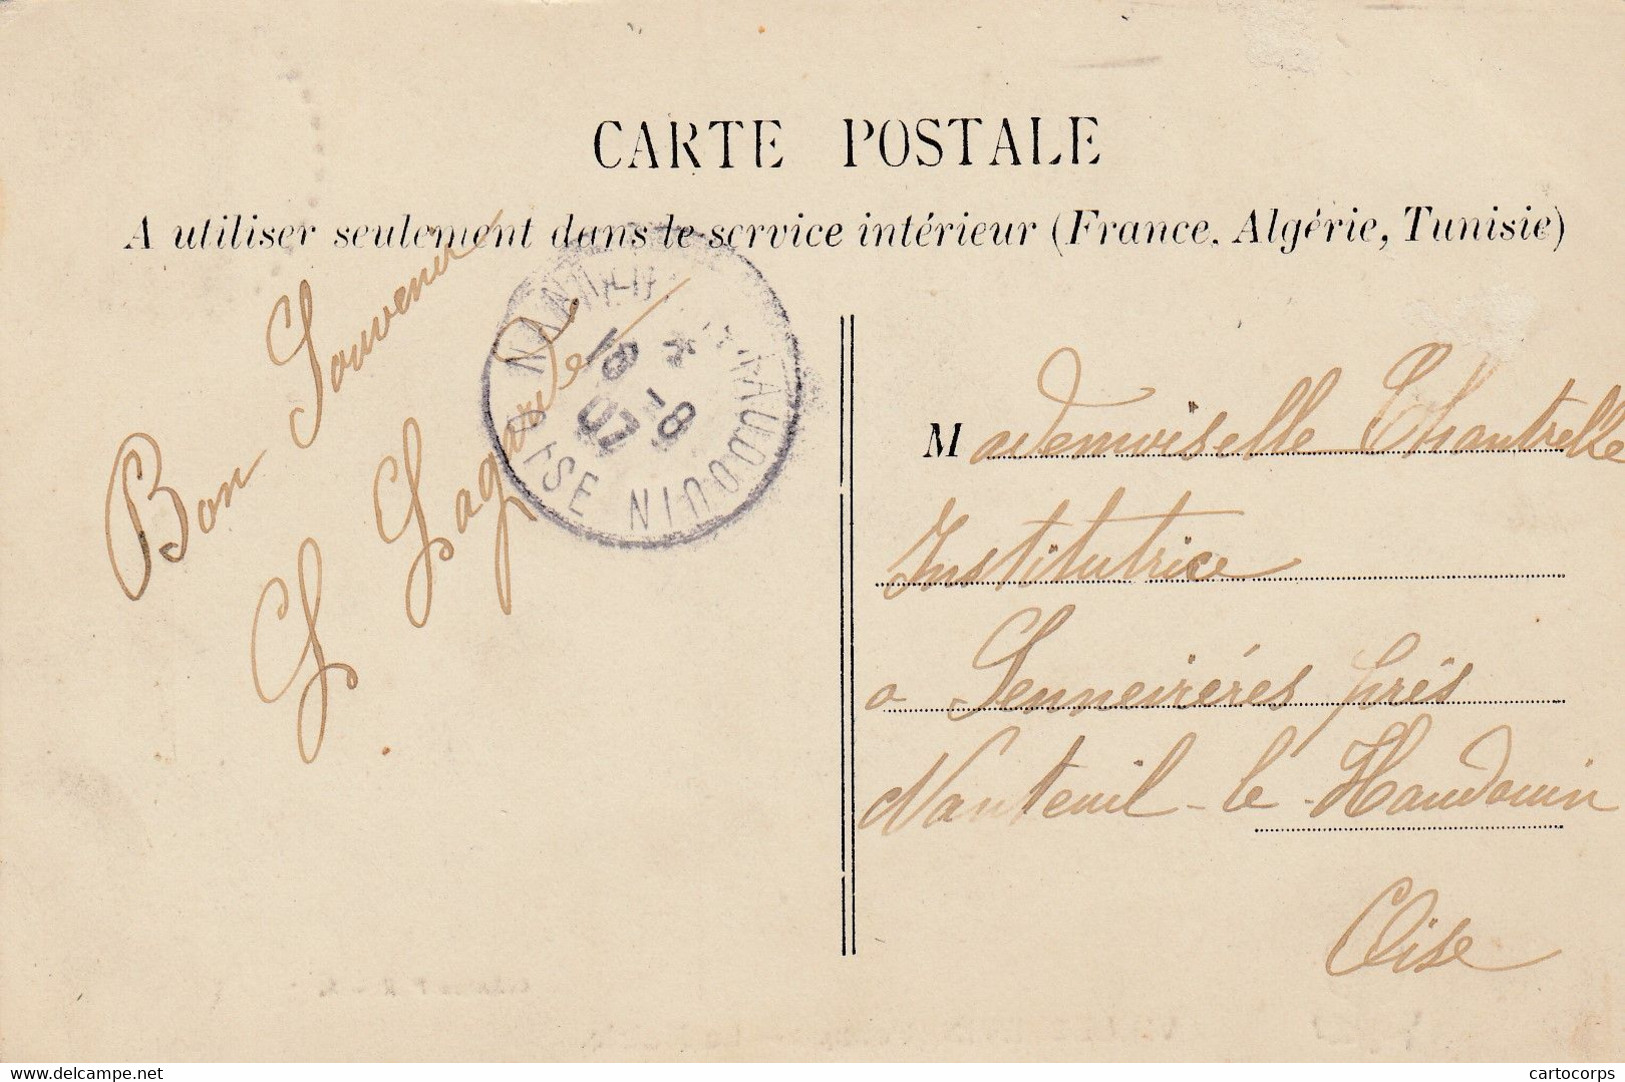 CARTE POSTALE
A utiliser seulement dans le service intérieur (France, Algérie, Tunisie)
Bon Souvenir
G Lagarde
NANTEUIL-LE-HAUDOUIN
OISE
18 -8
07
Mademoiselle Chantrelle
Institutrice
a Senneviéres prés
Nanteuil-le-Haudouin
Oise
delcampe.net
cartocorps